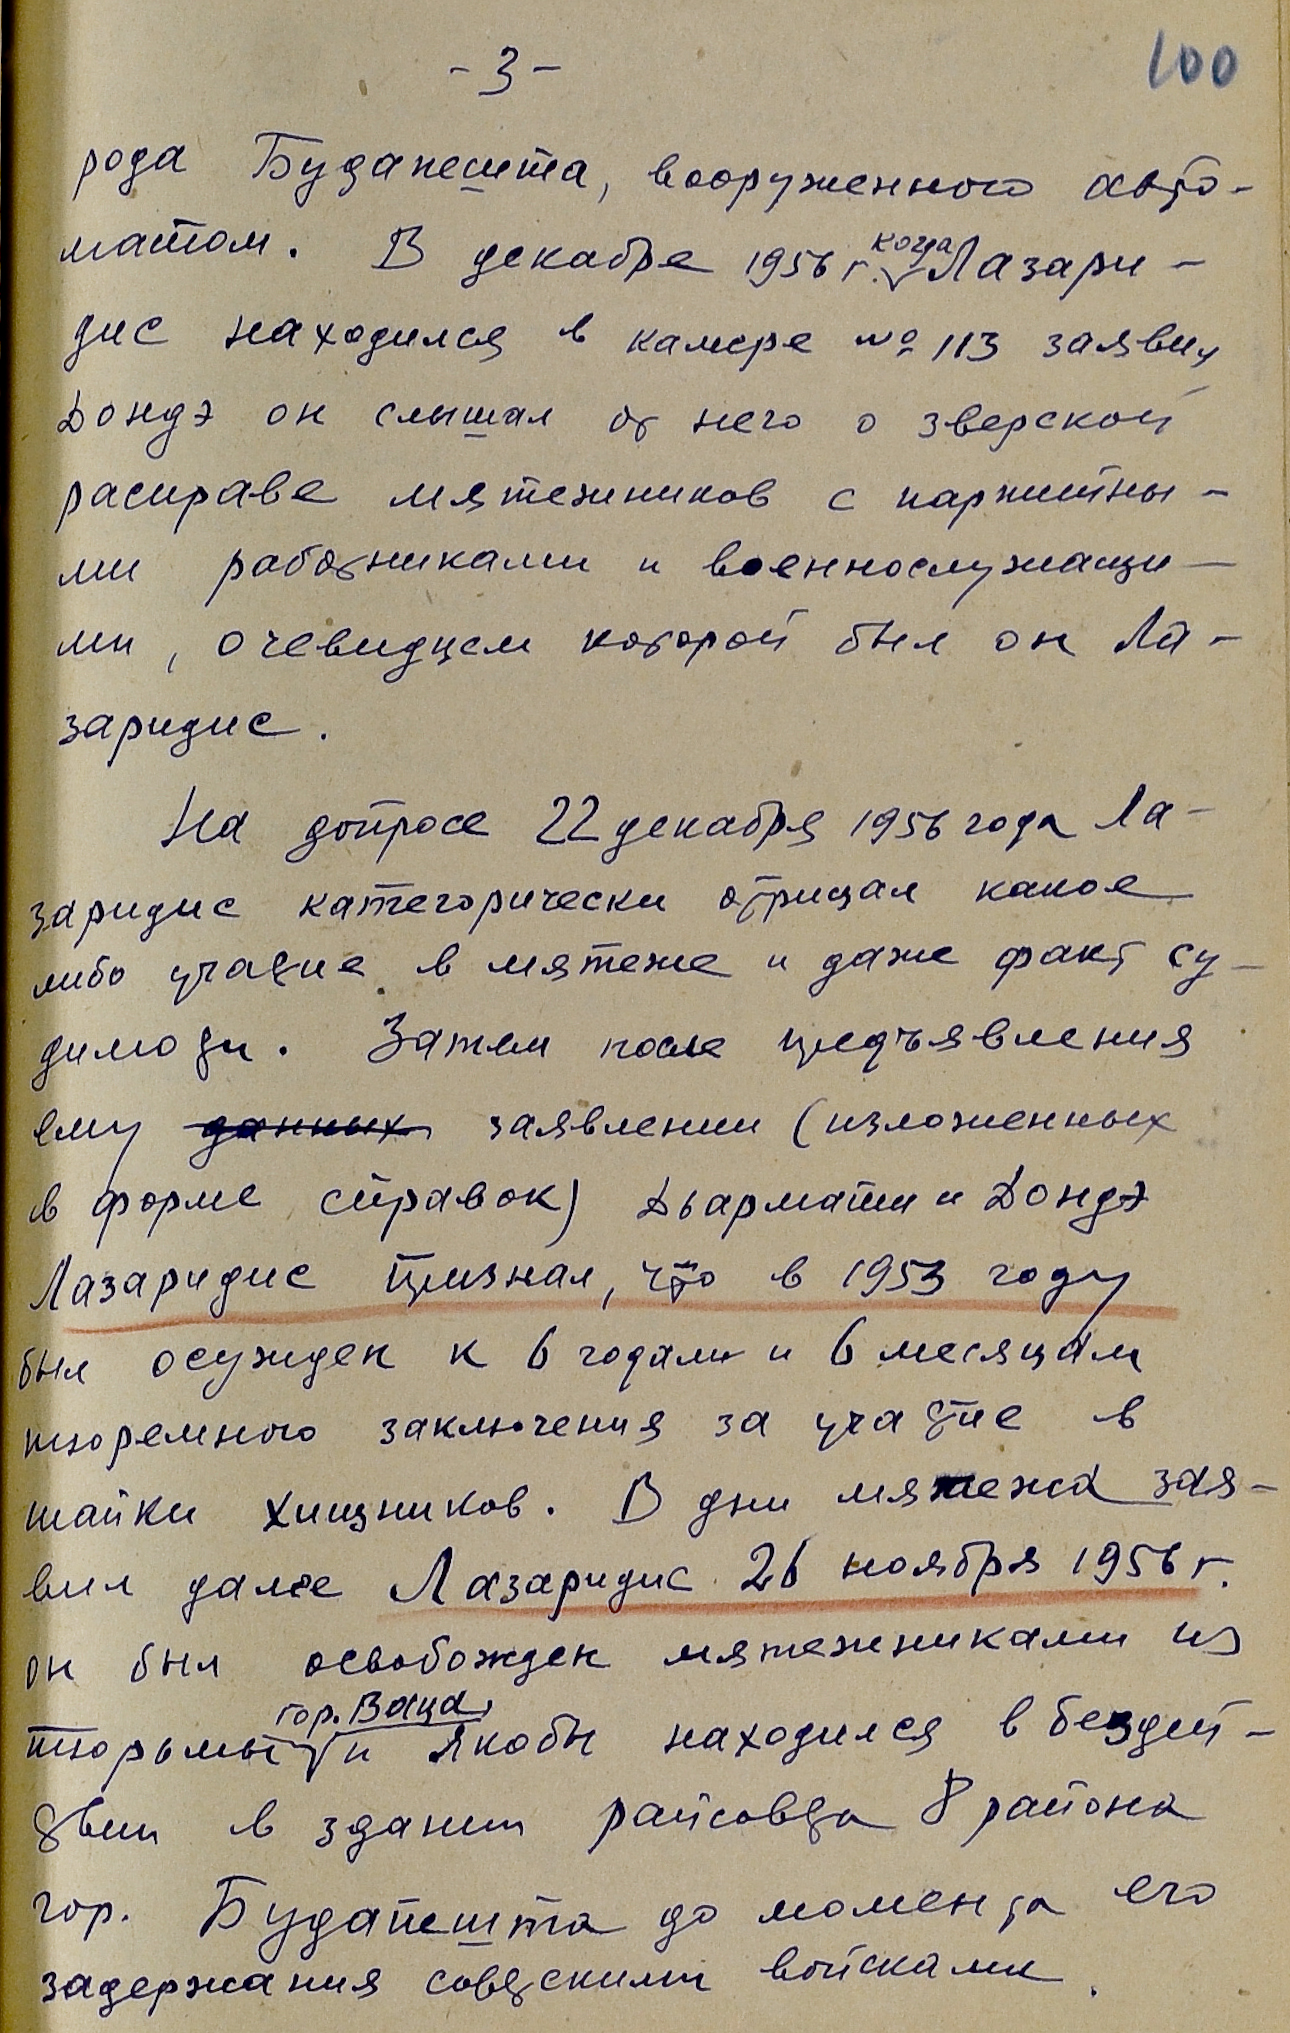 - 3 -
100
рода Будапешта, вооруженного авто-
матом. В декабре 1956 г. когда Лазари-
дис находился в камере № 113 заявил
Дондэ он слышал от него о зверской
расправе мятежников с партийны-
ми работниками и военнослужащи-
ми, очевидцем которой был он Ла-
заридис.
На допросе 22 декабря 1956 года Ла-
заридис категорически отрицал какое
либо участие в мятеже и даже факт су-
димости. Затем после предъявления
ему данных заявлении (изложенных
в форме справок) Дьармати и Дондэ
Лазаридис признал, что в 1953 году
был осужден к 6 годам и 6 месяцам
тюремного заключения за участие в
шайки хищников. В дни мятежа зая-
вил далее Лазаридис 26 ноября 1956 г.
он был освобожден мятежниками из
тюрьмы гор. Ваца и якобы находился в бездей-
ствии в здании райсовета 8 района
гор. Будапешта до момента его
задержания советскими войсками.